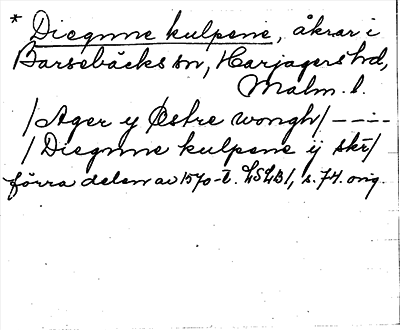 * Diegnne kulpene, åkrar i
Barsebäcks sn, Harjagers hd,
Malm. l.
/Ager y Østre wongh/ -----
/Diegnne kulpene ij skr/
förra delen av 1570-t. LSLB1, s. 74. orig.